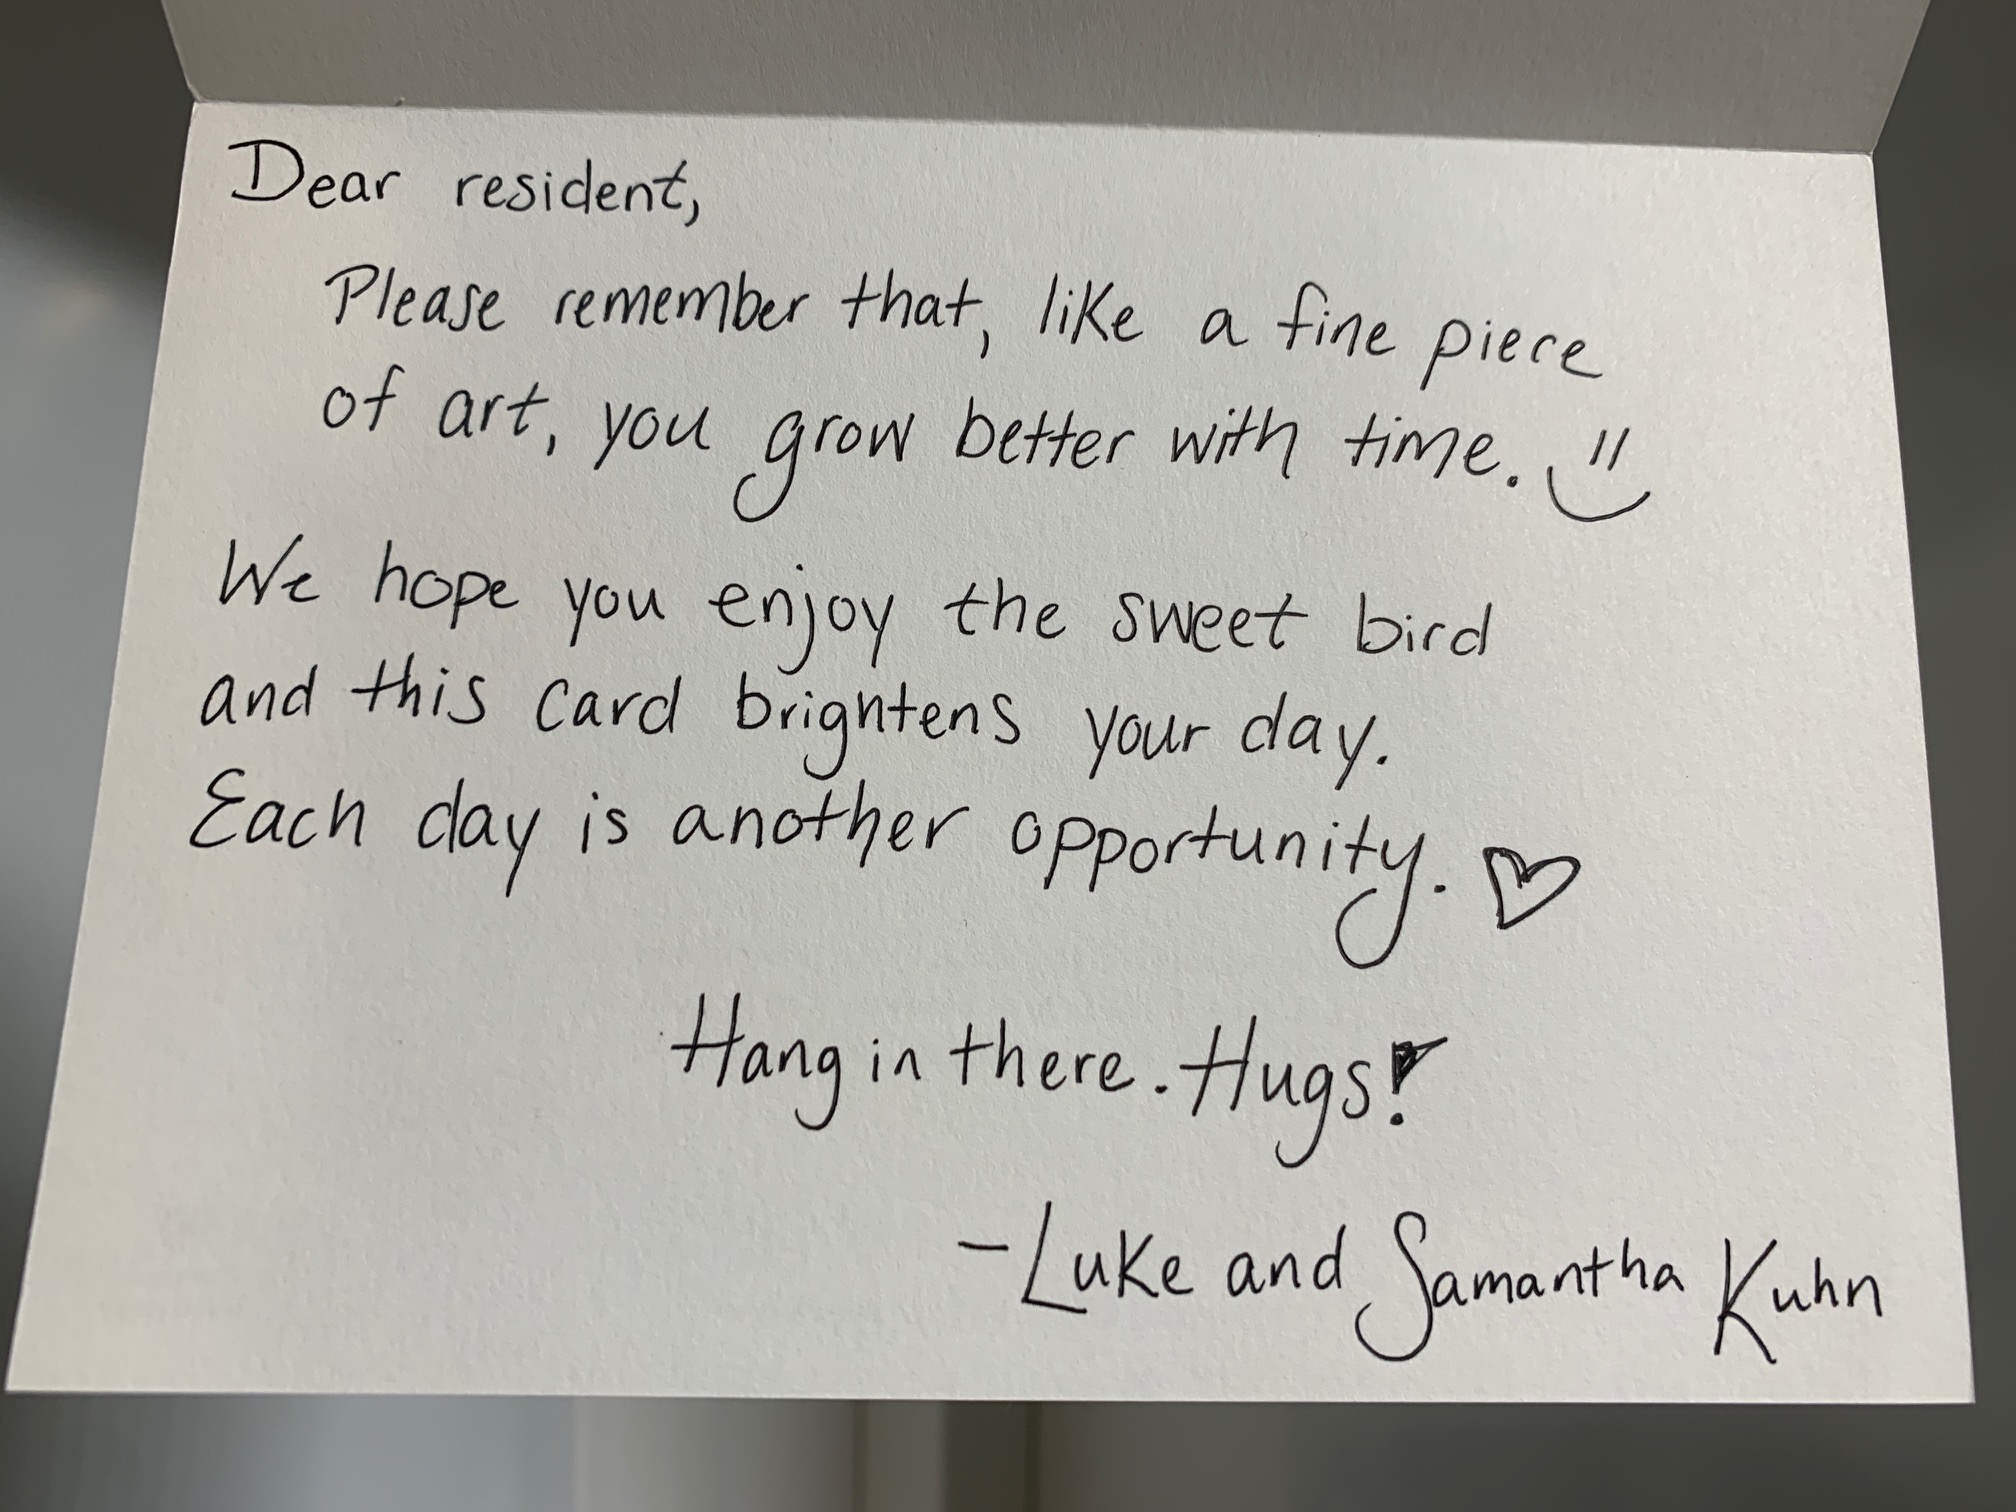 Dear resident,
Please remember that, like a fine piece
of art, you grow better with time. :)
We hope you enjoy the sweet bird
and this card brightens your day.
Each day is another opportunity. ♡
Hang in there. Hugs!
-Luke and Samantha Kuhn